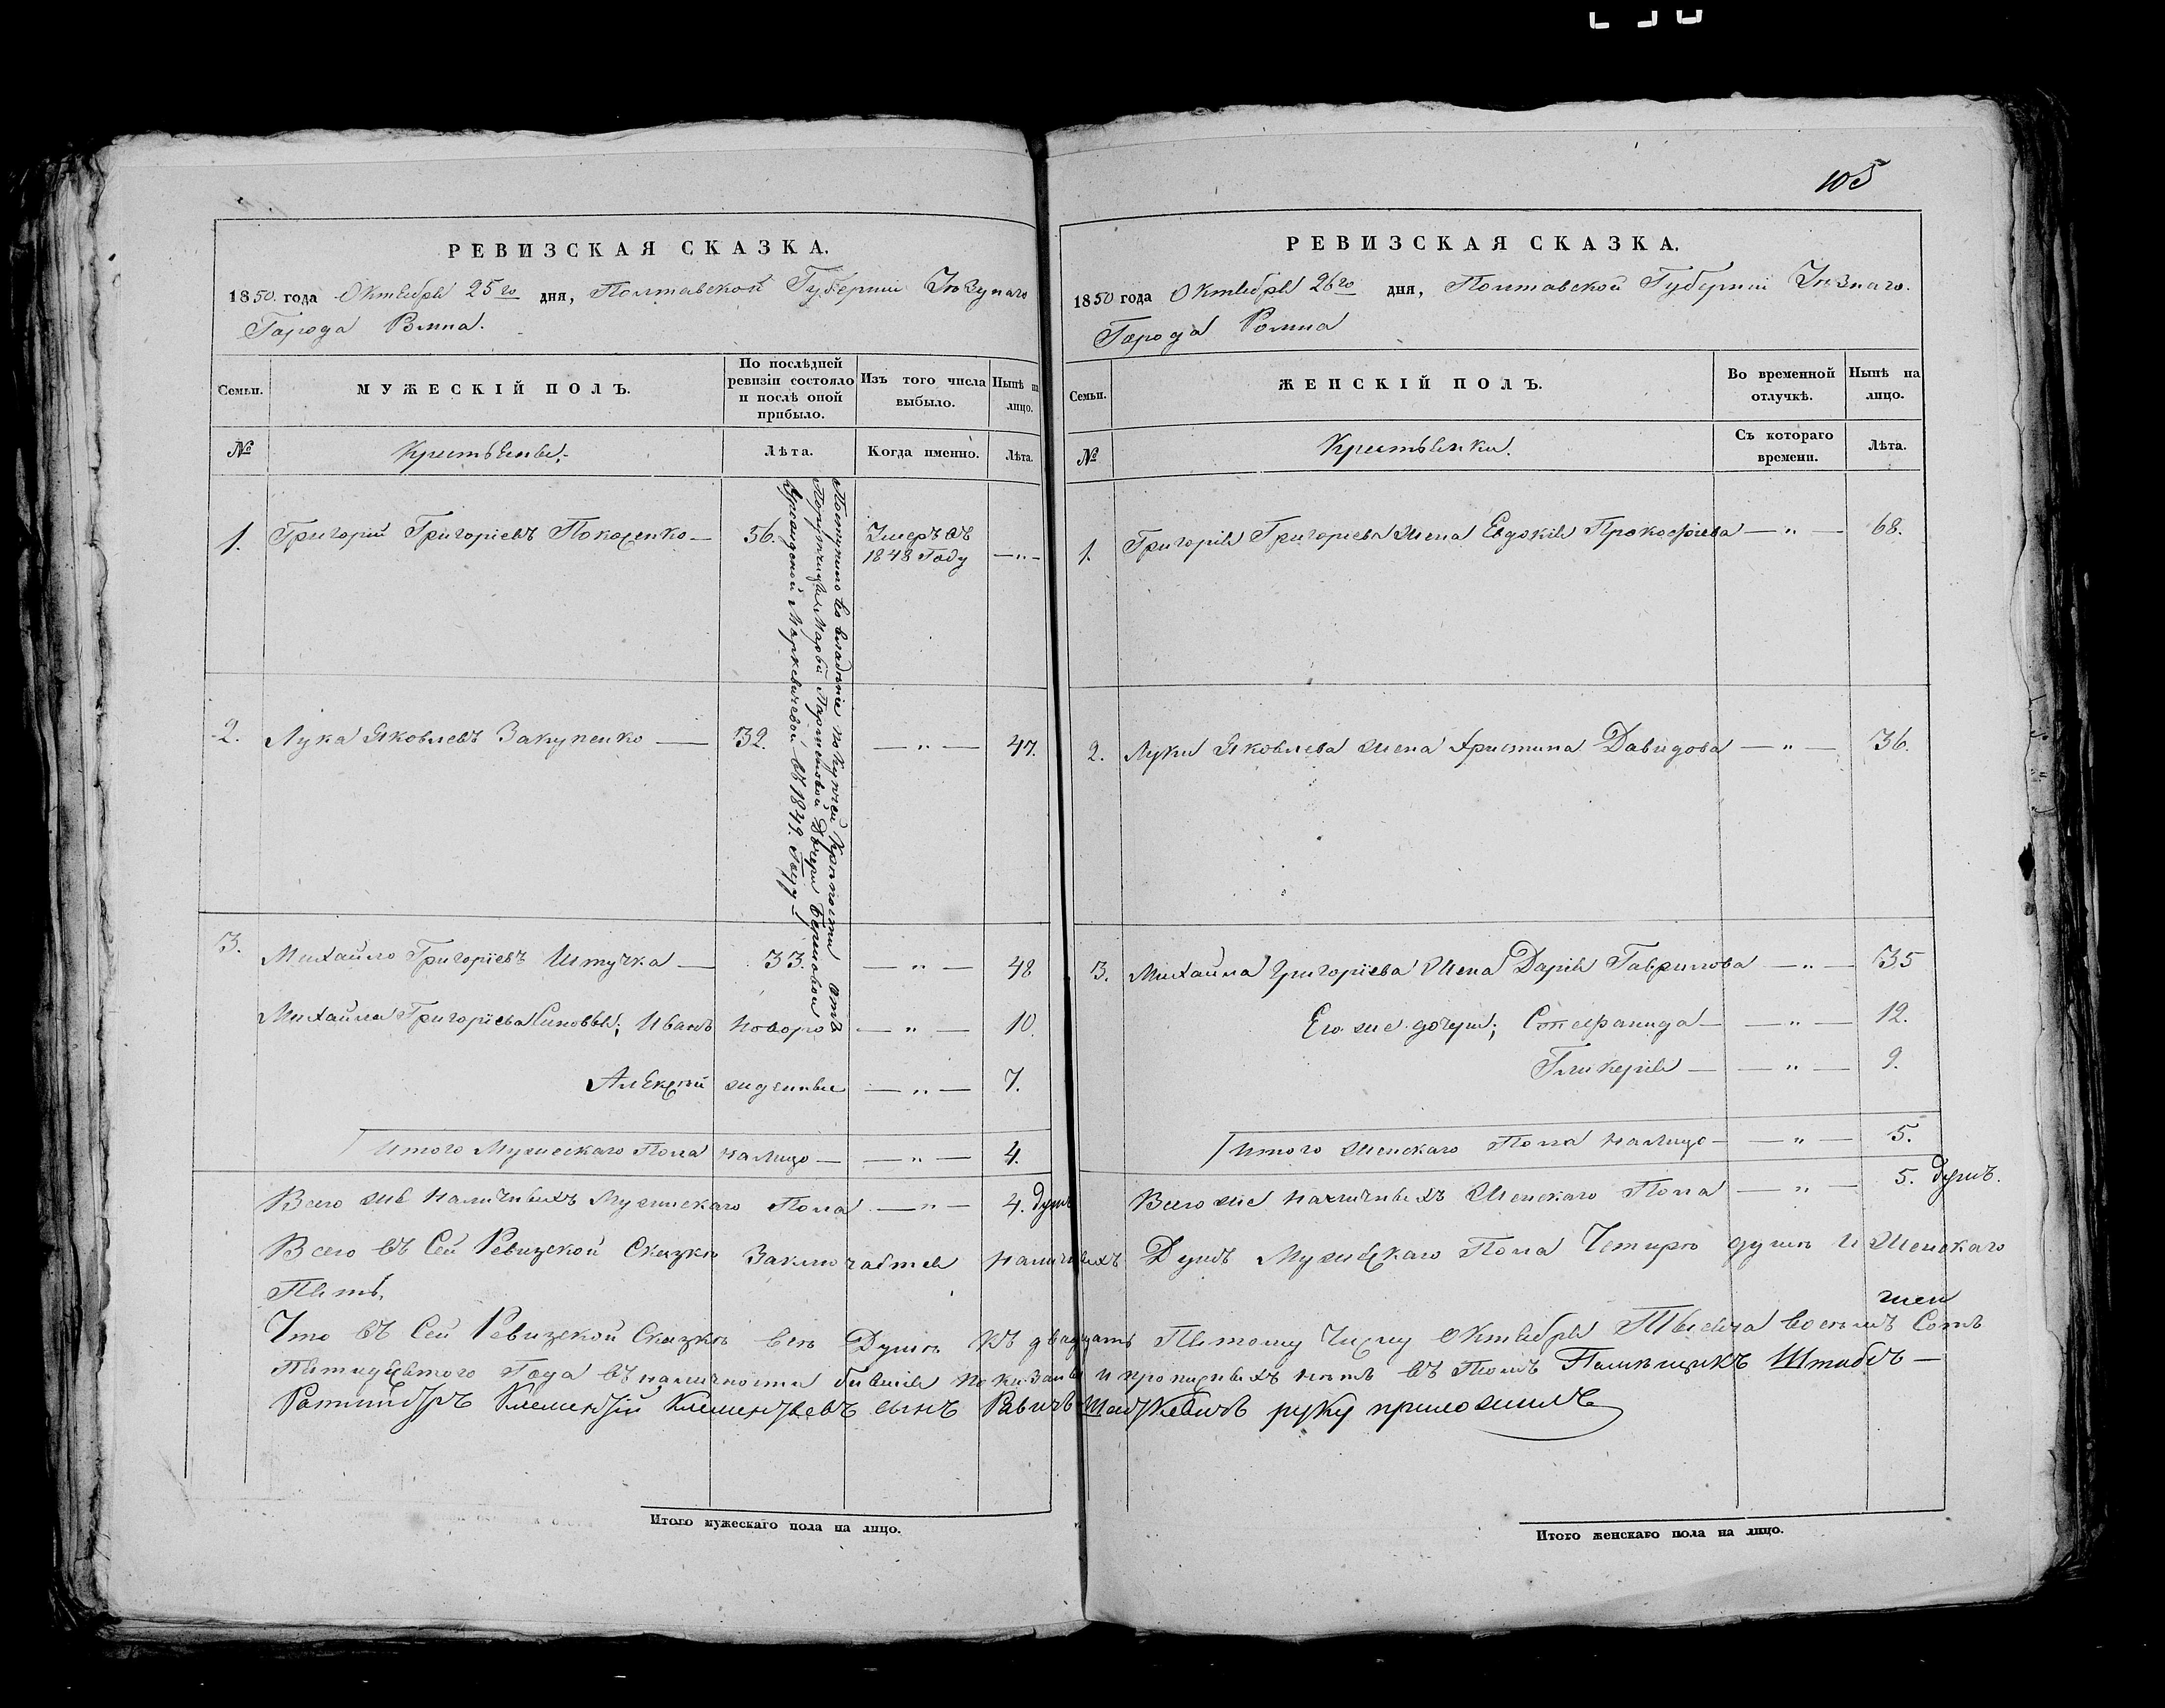 105
РЕВИЗСКАЯ СКАЗКА.
1850 года Октября 25го дня, Полтавской Губерніи Уѣзднаго
Города Ромна.
Семьи. МУЖЕСКІЙ ПОЛЪ. По послѣдней ревизіи состояло и послѣ оной прибыло. Изъ того числа выбыло. Нынѣ на лицо.
№ Крестьяне: Лѣта. Когда именно. Лѣта.
1. Григорій Григоріевъ 56. Умеръ въ 1848 Году — „ —
2. Лука Яковлевъ Закупенко — 32. — „ — 47.
3. Михайло Григоріевъ Штучка — 33. — „ — 48
Михайла Григоріева Сыновья; Иванъ новоро — „ — 10.
Алексѣй жденные — „ — 7.
Поступило во владѣніе по купчей Крепости отъ
Маріи дочери
въ 1849. Году —
Итого Мужескаго Пола налицо — — „ — 4.
Всего же наличныхъ Мужескаго Пола — „ — 4. душъ
РЕВИЗСКАЯ СКАЗКА.
1850 года Октября 26го дня, Полтавской Губерніи Уѣзнаго.
Города Ромна
Семьи. ЖЕНСКІЙ ПОЛЪ. Во временной отлучкѣ. Нынѣ на лицо.
№ Крестьянки. Съ котораго времени. Лѣта.
1. Григорія Григоріева жена Евдокія Прокофіева — „ — 68.
2. Луки Яковлева жена Христина Давидова — „ — 36.
3. Михайла Григоріева Жена Дарія Гаврилова — „ — 35
Его же дочери; Стефанида — — „ — 12.
Гликерія — — „ — 9.
Итого женскаго Пола налицо — — „ — 5.
Всего же наличныхъ Женскаго Пола — „ — 5. душъ.
Всего въ Сей Ревизской Сказкѣ Заключается наличныхъ Душъ Мужескаго Пола Четыре души и Женскаго
Пять.
Что въ Сей Ревизской Сказкѣ всѣ Души къ двадцать Пятому Числу Октября Тысяча восемъ Сотъ
Пятидесятого Года въ наличности бывшія показаны и прописныхъ нѣтъ въ томъ Помѣщикъ Штабсъ —
Ротмистръ Климентій Климентьевъ сынъ руку приложилъ
Итого мужескаго пола на лицо.
Итого женскаго пола на лицо.